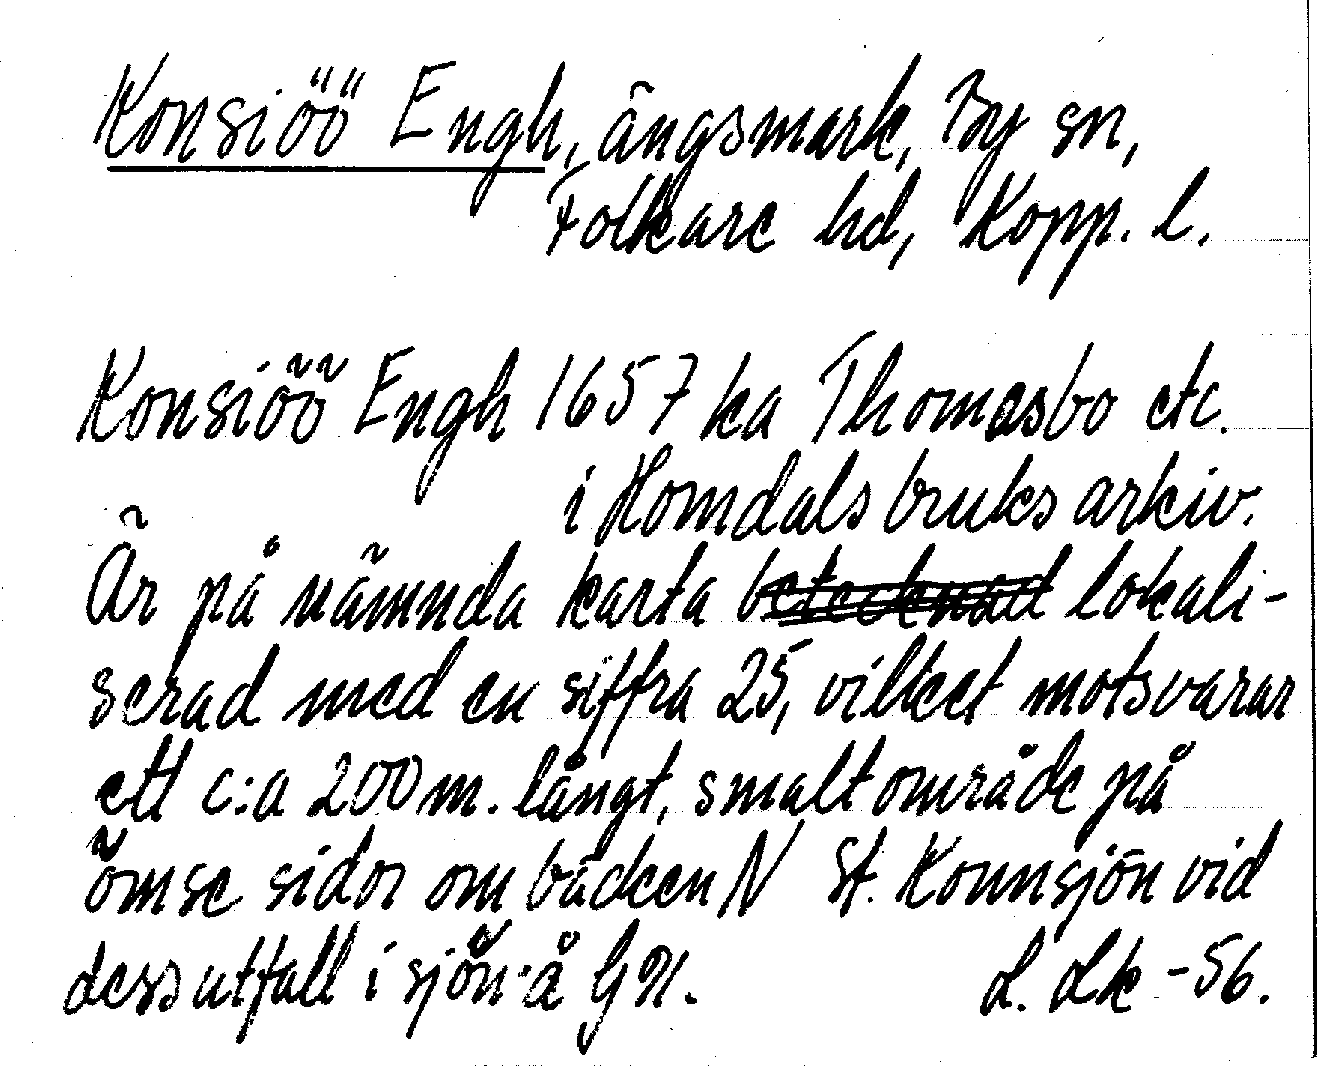 Konsiöö Engh, ängsmark, By sn,
Folkare hd, Kopp. l.
Konsiöö Engh 1657 ka Thomasbo etc.
i Horndals bruks arkiv.
Är på nämnda karta betecknad lokali-
serad med en siffra 25, vilket motsvarar
ett c:a 200 m. långt, smalt område på
ömse sidor om bäcken N St. Konnsjön vid
dess utfall i sjön å